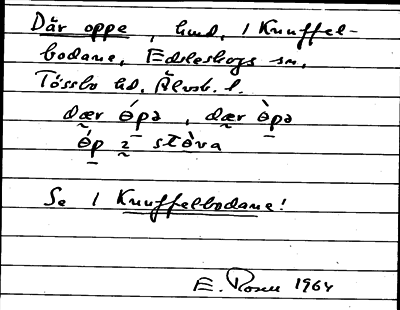 Där oppe, hmd, 1 Knuffel-
bodane, Edsleskogs sn,
Tössbo hd, Älvsb. l.
dær ópə, dær òpə
óp ı stòva
Se 1 Knuffelbodane!
E. Rosen 1964